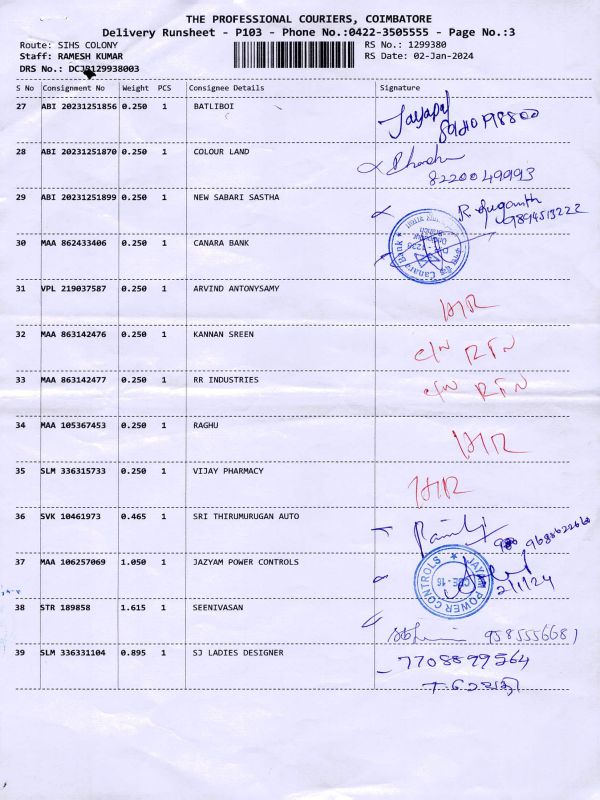 THE PROFESSIONAL COURIERS, COIMBATORE
Delivery Runsheet - P103 - Phone No.:0422-3505555 - Page No.:3
Route: SIHS COLONY RS No.: 1299380
Staff: RAMESH KUMAR RS Date: 02-Jan-2024
DRS No.: 129938003
S No Consignment No Weight PCS Consignee Details Signature
27 ABI 20231251856 0.250 1 BATLIBOI
28 ABI 20231251870 0.250 1 COLOUR LAND
8220049993
29 ABI 20231251899 0.250 1 NEW SABARI SASTHA R. Suganth
9894513222
30 MAA 862433406 0.250 1 CANARA BANK Canara Bank
31 VPL 219037587 0.250 1 ARVIND ANTONYSAMY
32 MAA 863142476 0.250 1 KANNAN SREEN C/N RTN
33 MAA 863142477 0.250 1 RR INDUSTRIES C/N RTN
34 MAA 105367453 0.250 1 RAGHU
35 SLM 336315733 0.250 1 VIJAY PHARMACY
36 SVK 10461973 0.465 1 SRI THIRUMURUGAN AUTO
37 MAA 106257069 1.050 1 JAZYAM POWER CONTROLS JAYAM POWER CONTROLS CBE - 16
2/1/24
38 STR 189858 1.615 1 SEENIVASAN 9585556681
39 SLM 336331104 0.895 1 SJ LADIES DESIGNER 7708899564